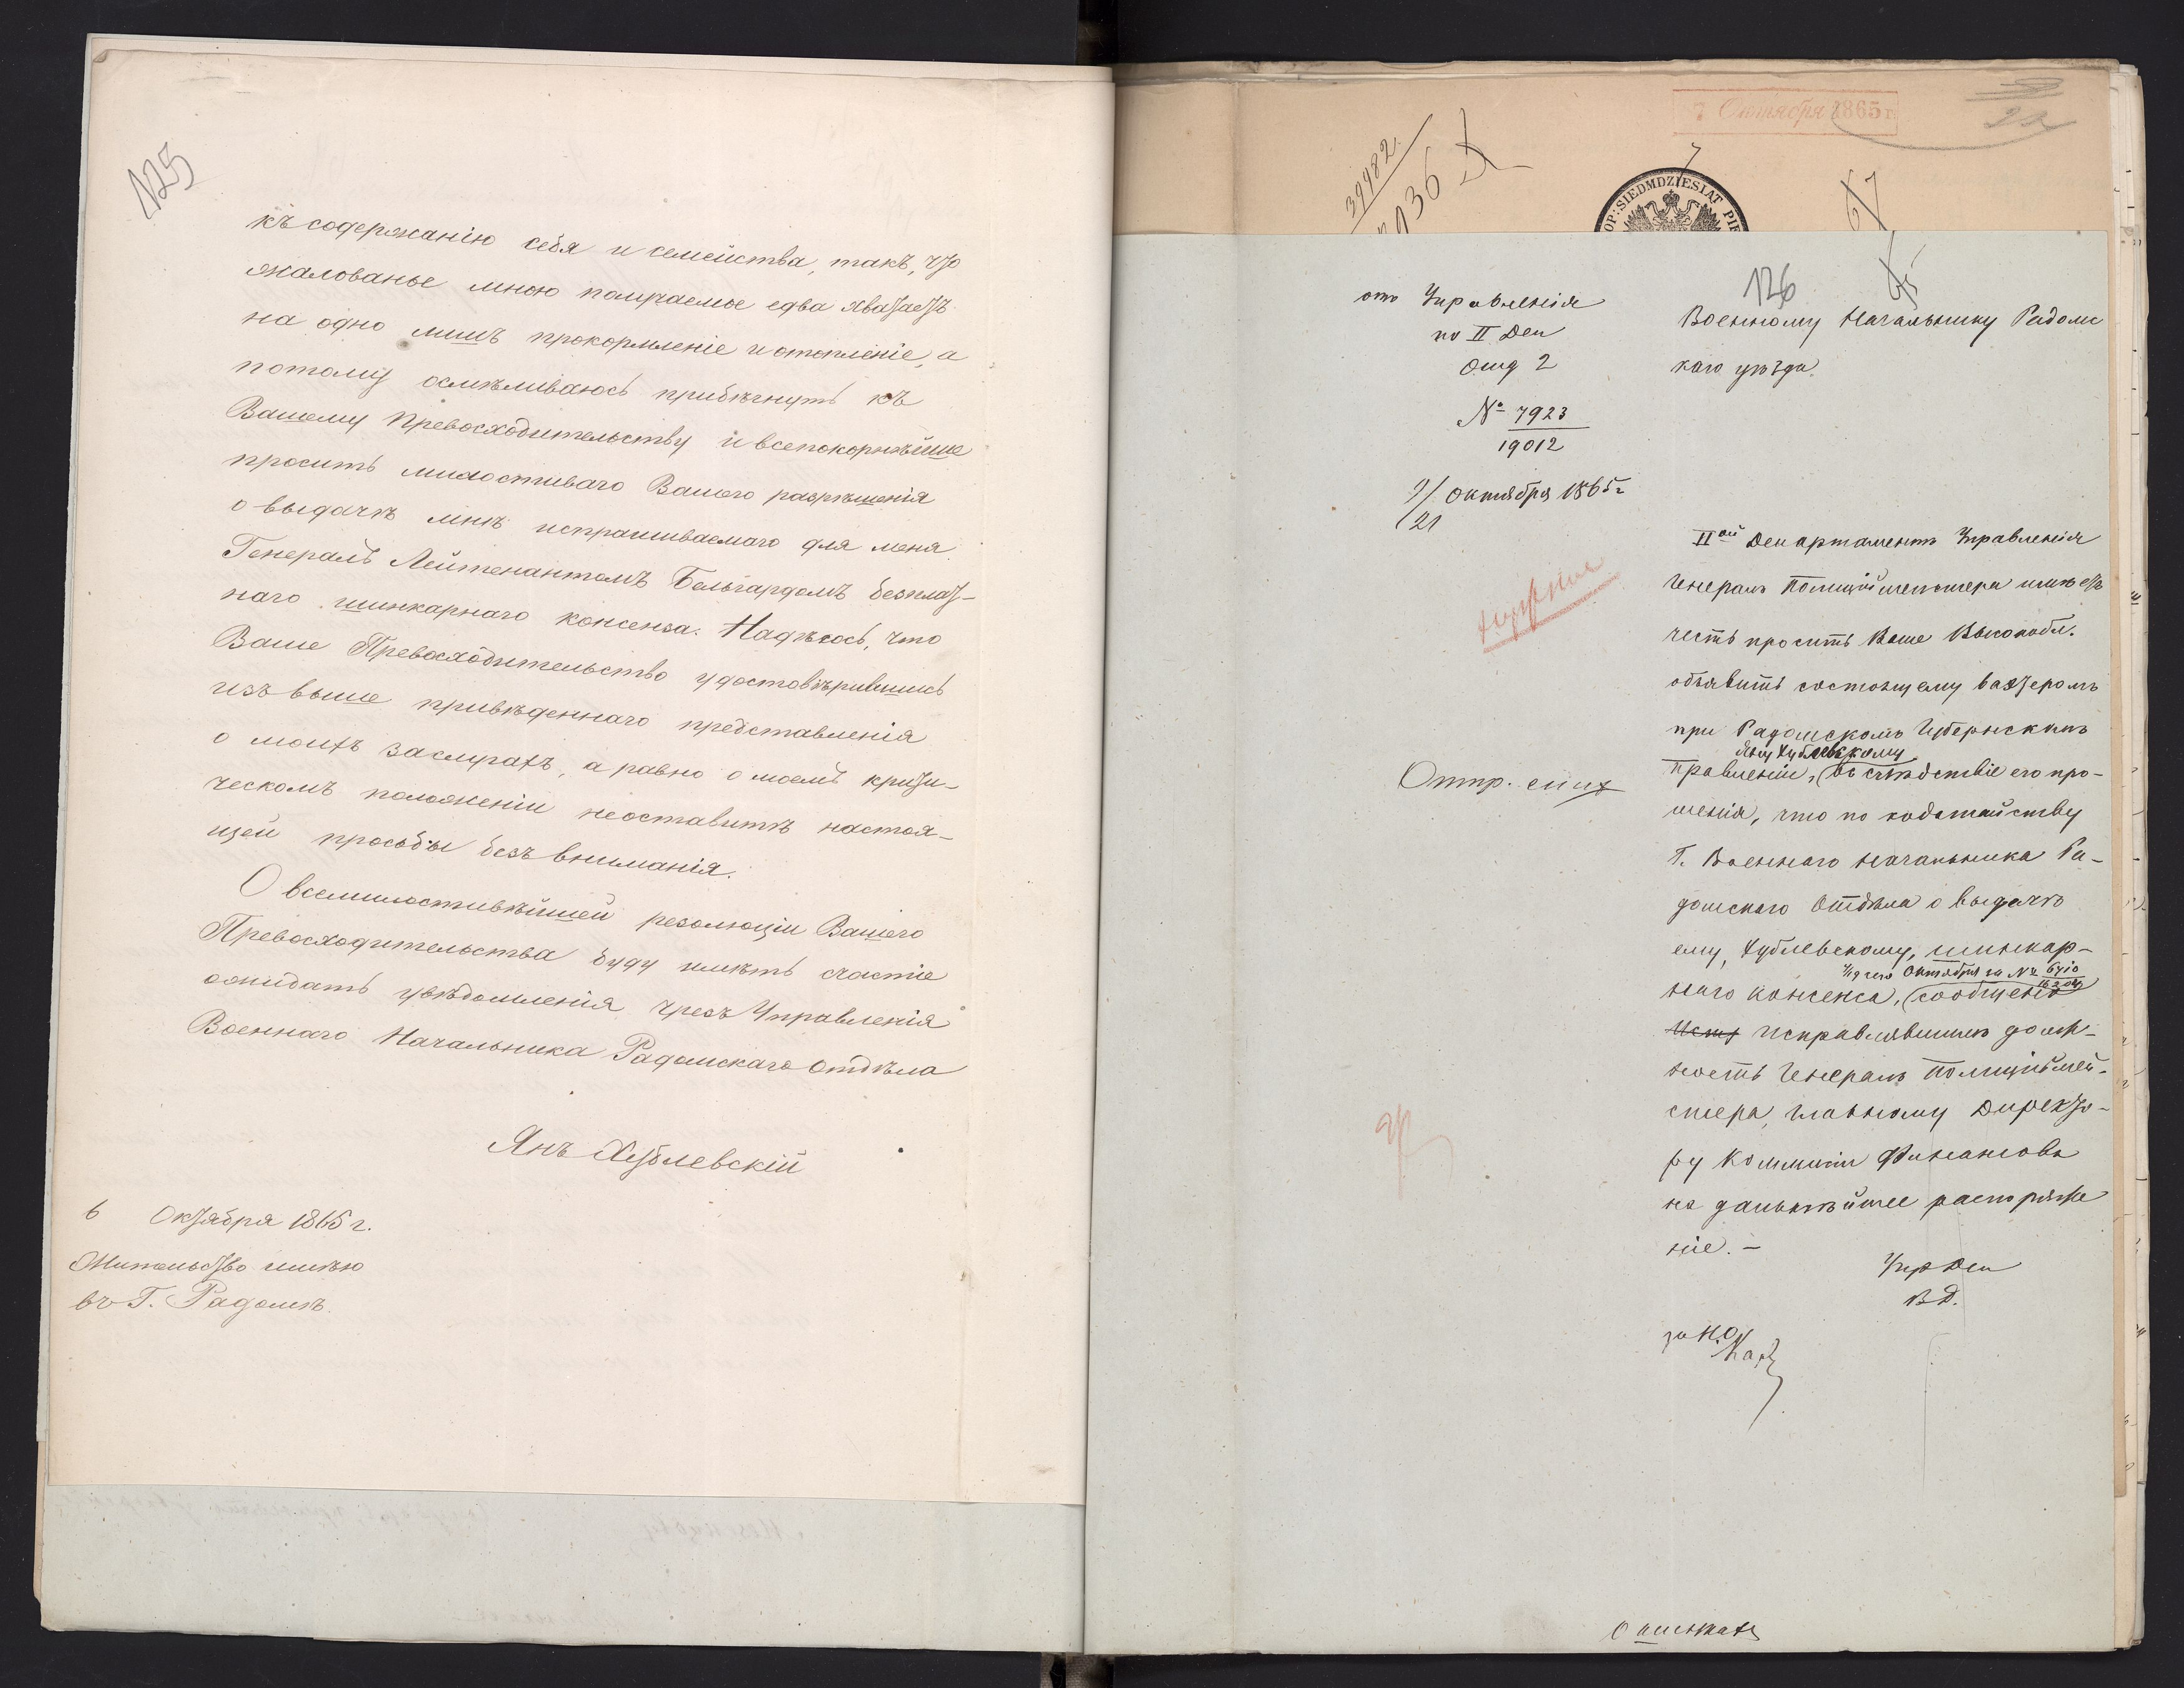 125
къ содержанію себя и семейства, такъ, что
жалованье мною получаемое едва хватаетъ
на одно лишъ прокормленіе и отопленіе, а
потому осмѣливаюсь прибѣгнуть къ
Вашему Превосходительству и всепокорнѣйше
просить милостиваго Вашего разрѣшенія
о выдачѣ мнѣ испрашиваемаго для меня
Генералъ Лейтенантомъ Бельгардомъ безплат-
наго шинкарнаго консенза. Надѣюсь, что
Ваше Превосходительство удостовѣрившись
изъ выше привѣденнаго представленія
о моихъ заслугахъ, а равно о моемъ крити-
ческомъ положеніи неоставитъ настоя-
щей просьбы безъ вниманія.
О всемилостивѣйшей резолюціи Вашего
Превосходительства буду имѣть счастіе
ожидать увѣдомленія чрезъ Управленія
Военнаго Начальника Радомскаго Отдѣла
Янъ Хублевскій
6 Октября 1865 г.
Жительство имѣю
въ Г. Радомѣ.
7 Октября 1865 г.
22
39482
936
OP: SIEDMDZIESIAT PIE
67
126
отъ Управленія
по II Деп
Отд 2
№ 7923
19012
9/21 Октября 1865 г
Военному Начальнику Радомс
каго уѣзда.
IIой Департаментъ Управленія
Генералъ Полиціймейстера имѣетъ
честь просить Ваше Высокобл.
объявить состоящему вахтеромъ
при Радомскомъ Губернскомъ
Яну Хублевскому
Правленіи, въ слѣдствіе его про-
шенія, что по ходатайству
Г. Военнаго Начальника Ра-
домскаго Отдѣла о выдачѣ
ему, Хублевскому, шинкар-
Октября за № 6710
наго консенса, сообщено
Исправлявшимъ долж-
ность Генералъ Полиціймей-
стера, Главному Директо-
ру Коммисіи Финансовъ
на дальнѣйшее распоряже
ніе. –
Упр Деп
В Д.
за Н.О.
Отпр.
О шинкахъ